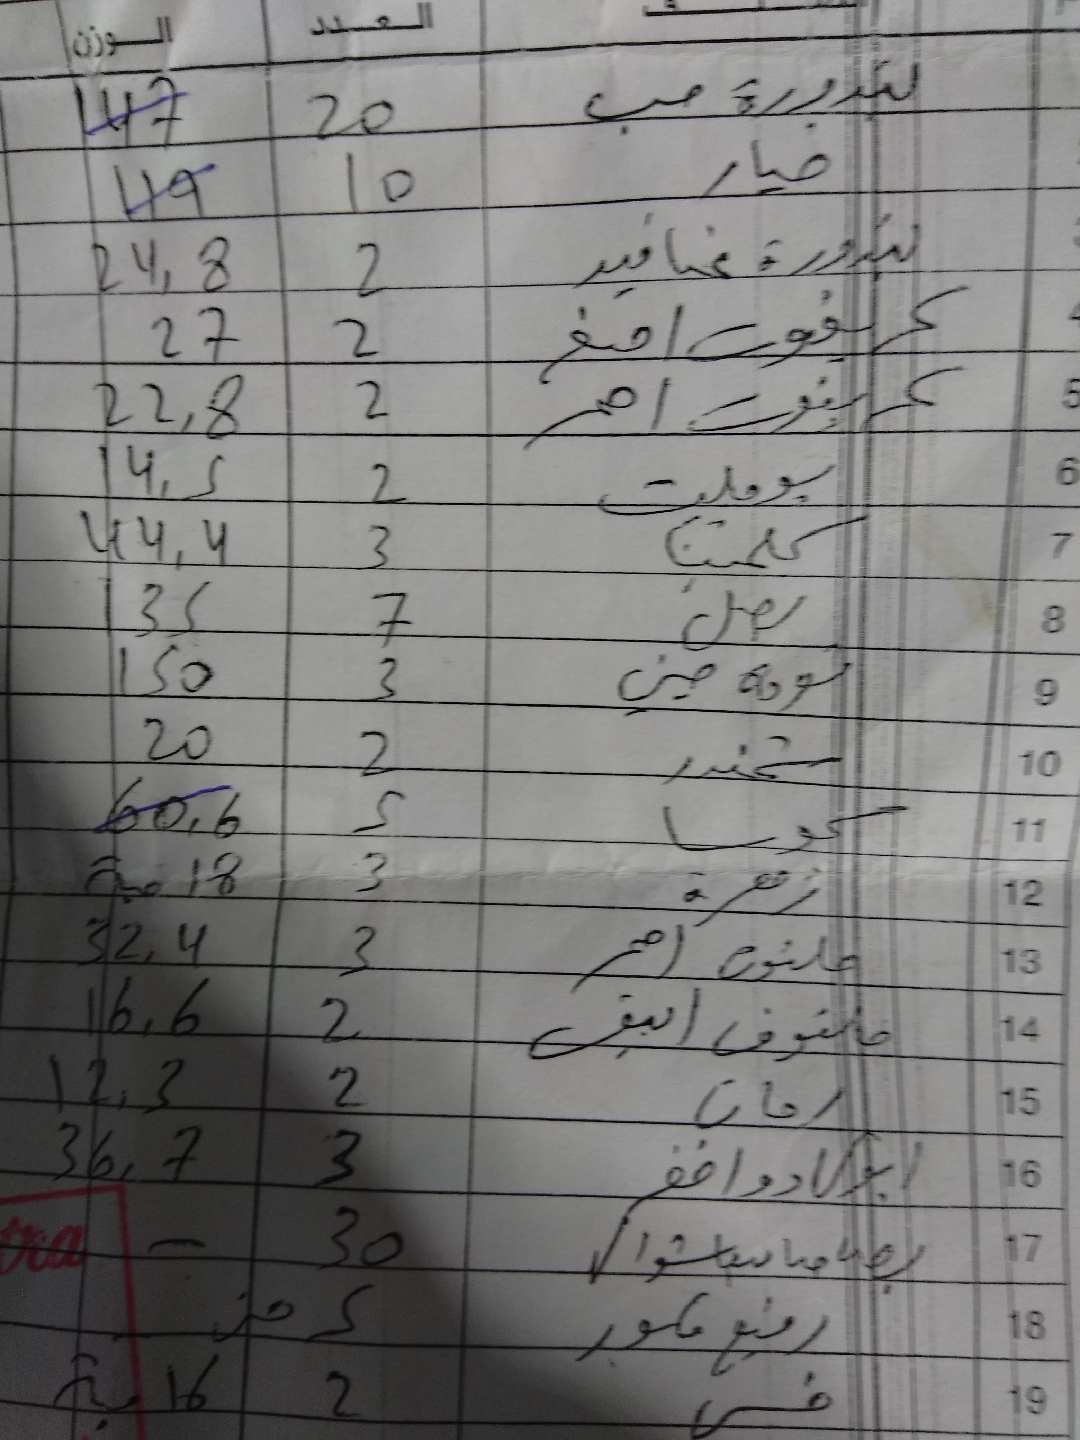 العدد الوزن
بندورة حب 20 147
خيار 10 49
بندورة عناقيد 2 24,8
كريفوت اصفر 2 27
5 كريفوت احمر 2 22,8
6 بومليت 2 14,5
7 كلمنتينا 3 44,4
8 بصل 7 135
9 3 150
10 شمندر 2 20
11 كوسا 5 60,6
12 زهرة 3 18 حبة
13 ملفوف احمر 3 32,4
14 ملفوف ابيض 2 16,6
15 رمان 2 12,3
16 افوكادو اخضر 3 36,7
17 30 -
18 5
19 خس 2 16 حبة